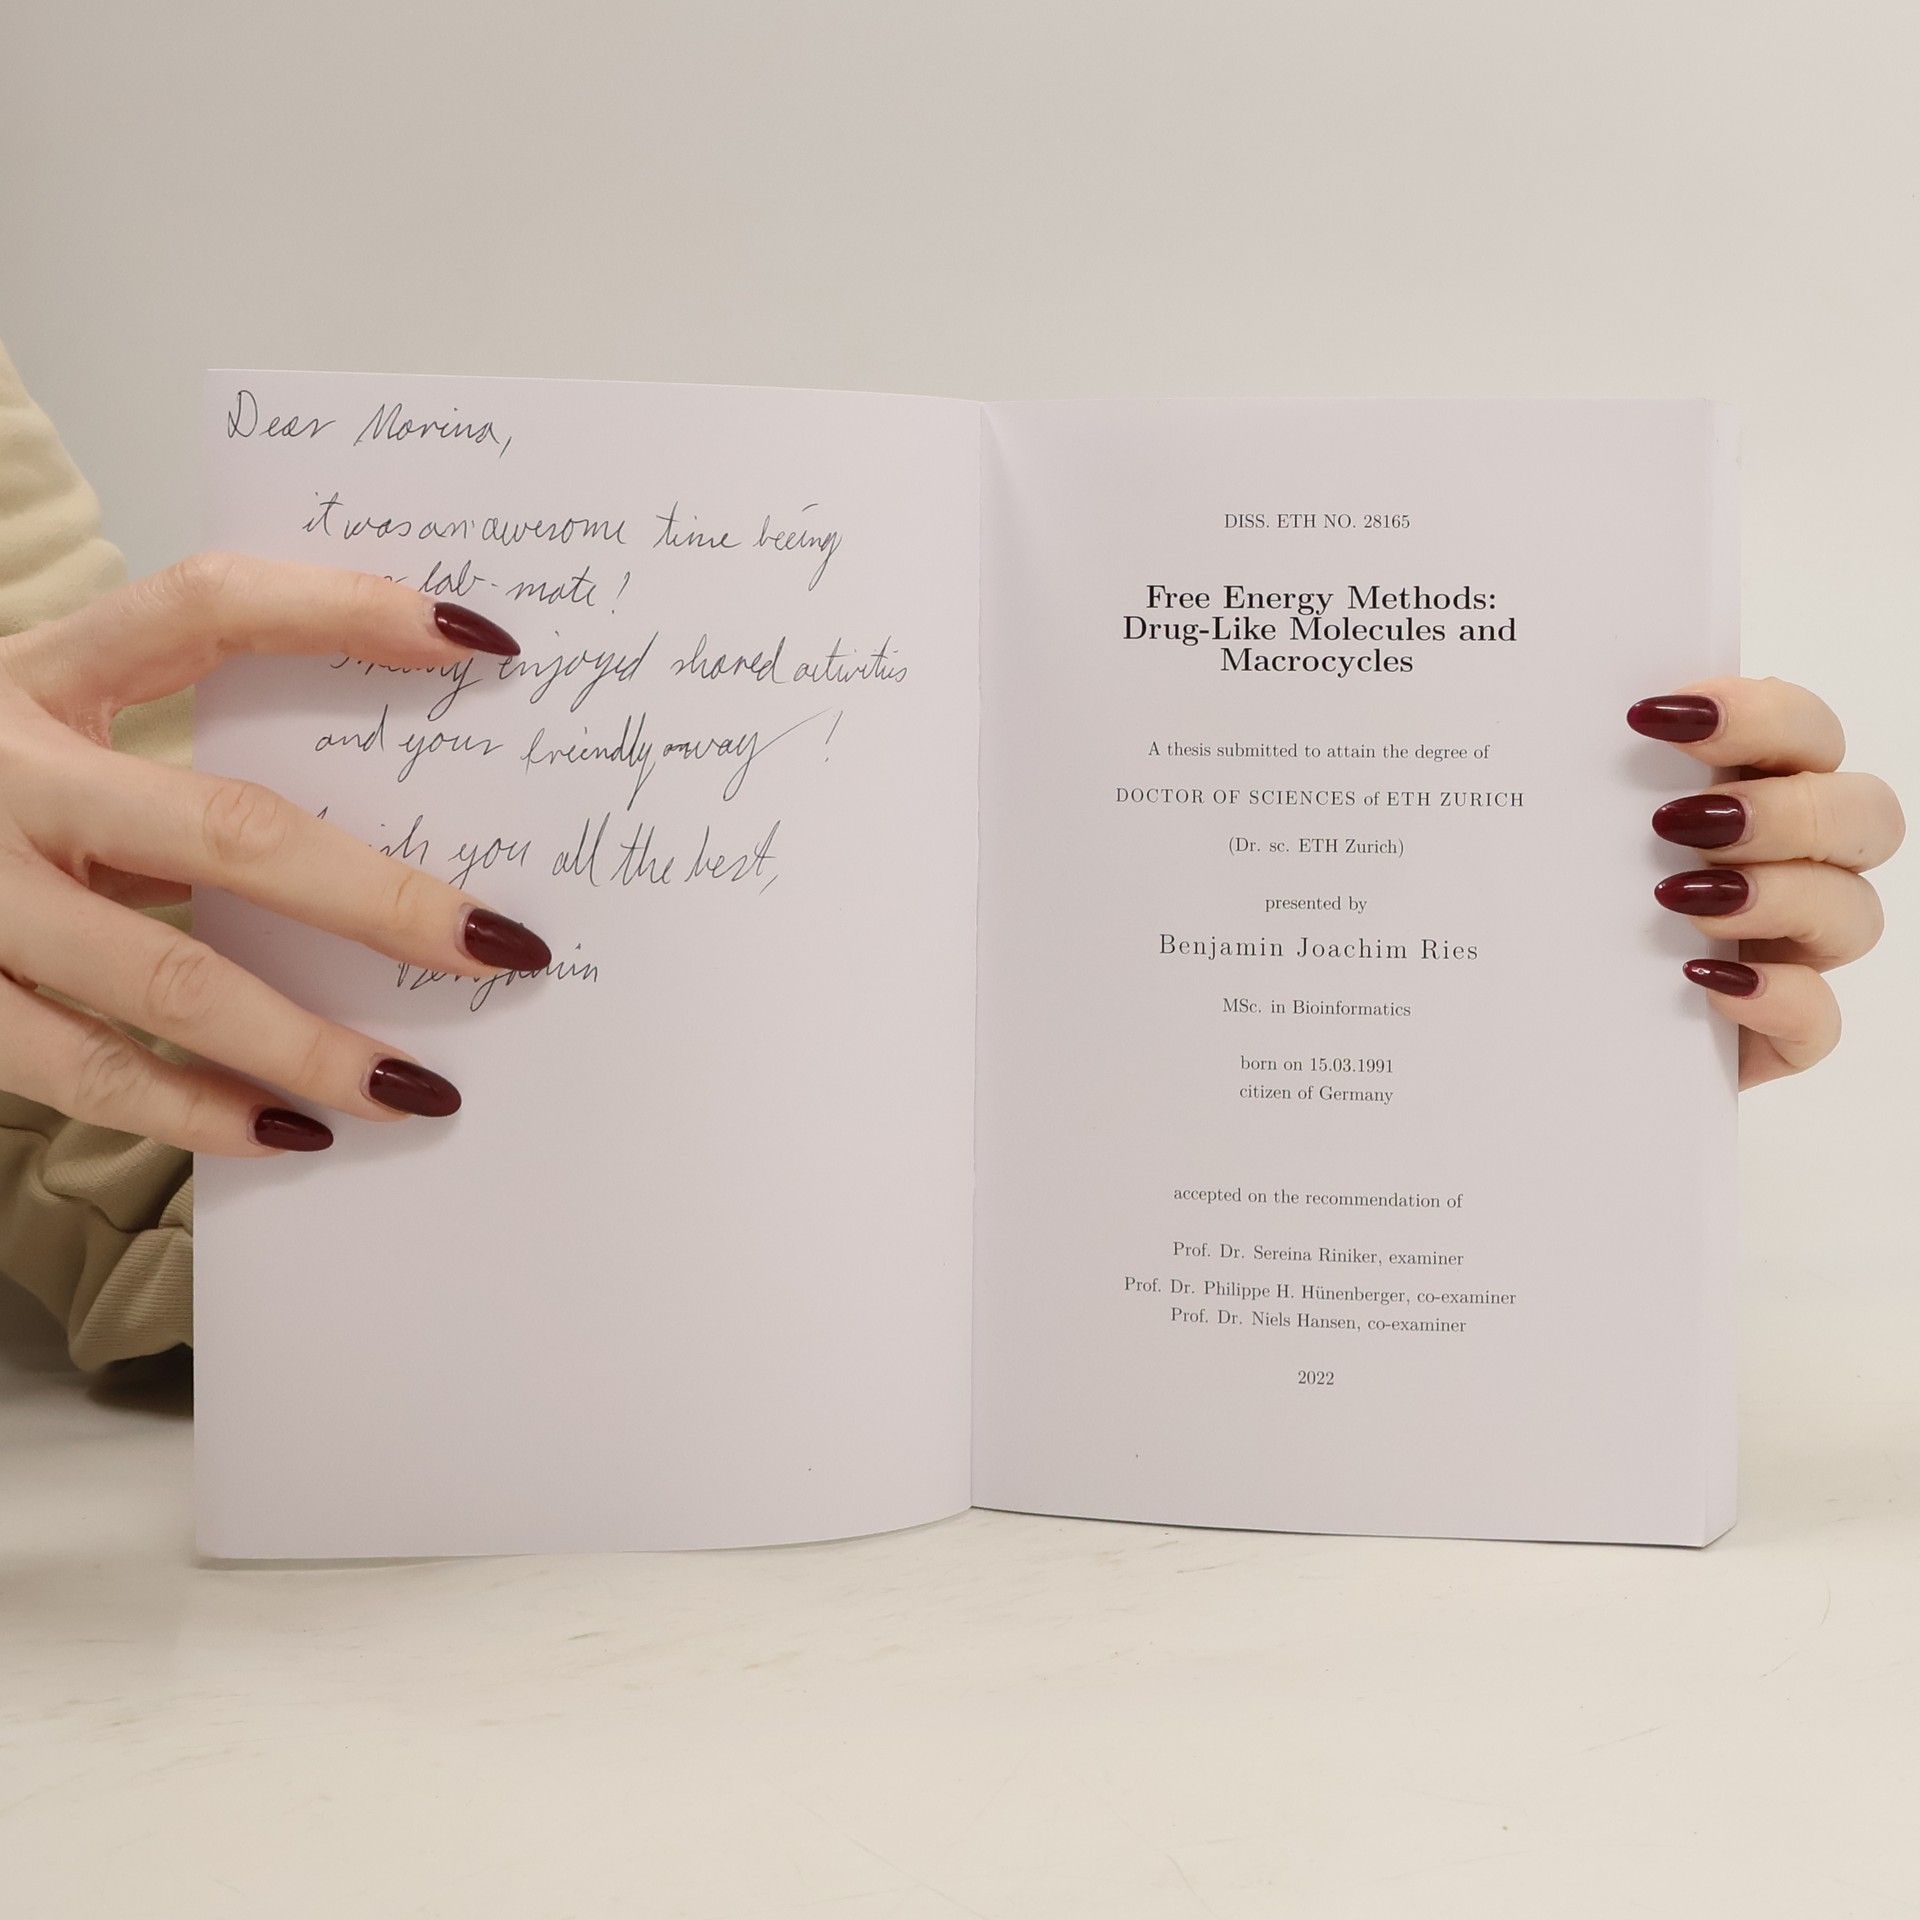 Dear Marina,
it was an awesome time beeing
lab-mate!
enjoyed shared activities
and your friendly way!
wish you all the best,
Benjamin
DISS. ETH NO. 28165
Free Energy Methods:
Drug-Like Molecules and
Macrocycles
A thesis submitted to attain the degree of
DOCTOR OF SCIENCES of ETH ZURICH
(Dr. sc. ETH Zurich)
presented by
Benjamin Joachim Ries
MSc. in Bioinformatics
born on 15.03.1991
citizen of Germany
accepted on the recommendation of
Prof. Dr. Sereina Riniker, examiner
Prof. Dr. Philippe H. Hünenberger, co-examiner
Prof. Dr. Niels Hansen, co-examiner
2022